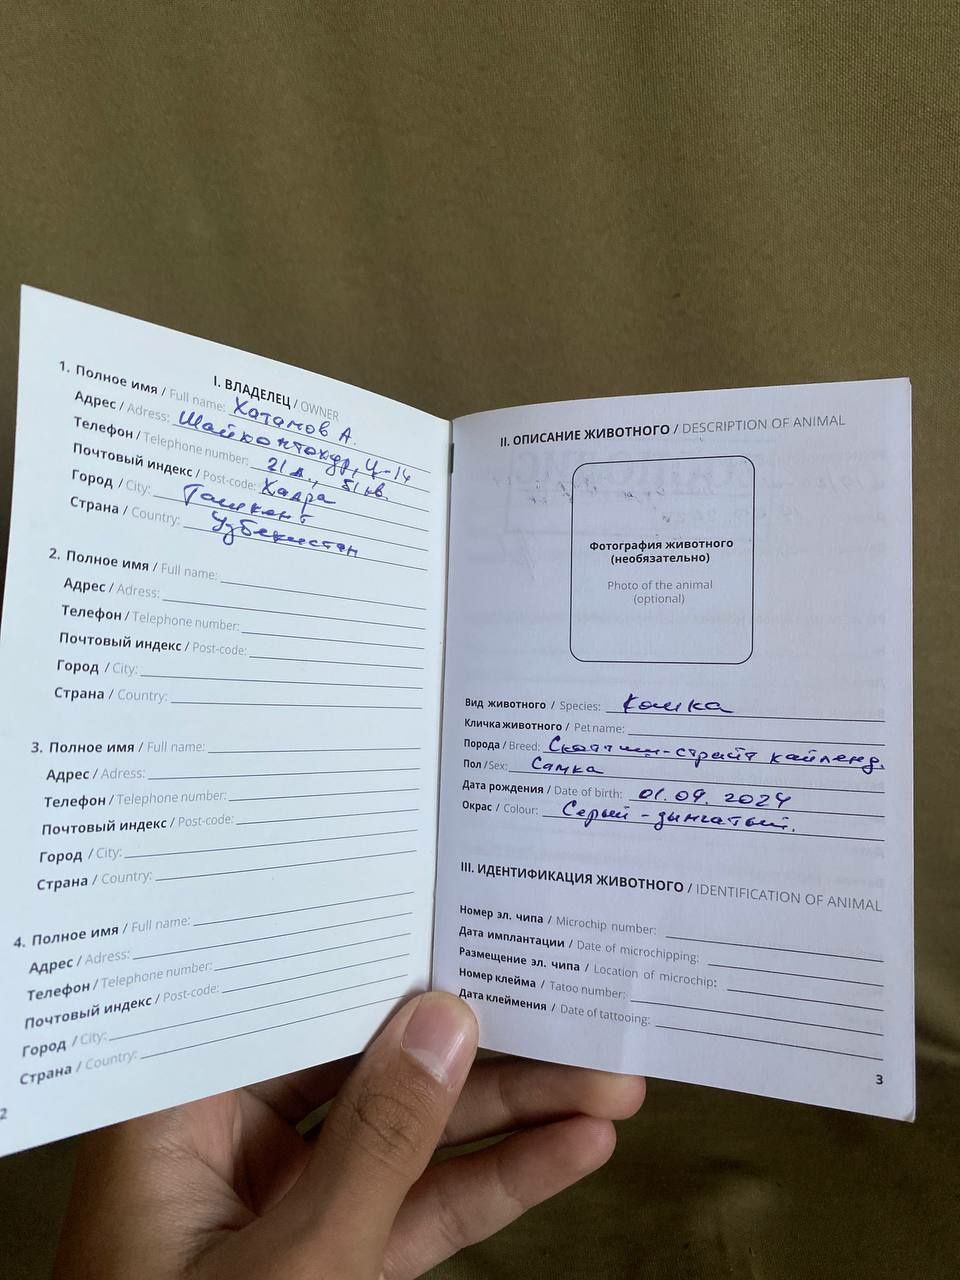 I. ВЛАДЕЛЕЦ / OWNER
1. Полное имя / Full name: Хатамов А.
Адрес / Adress: Шайхонтохур, Ц-14
Телефон / Telephone number: 21 д., 51 кв.
Почтовый индекс / Post-code: Хадра
Город / City: Ташкент
Страна / Country: Узбекистан
2. Полное имя / Full name:
Адрес / Adress:
Телефон / Telephone number:
Почтовый индекс / Post-code:
Город / City:
Страна / Country:
3. Полное имя / Full name:
Адрес / Adress:
Телефон / Telephone number:
Почтовый индекс / Post-code:
Город / City:
Страна / Country:
4. Полное имя / Full name:
Адрес / Adress:
Телефон / Telephone number:
Почтовый индекс / Post-code:
Город / City:
Страна / Country:
2
II. ОПИСАНИЕ ЖИВОТНОГО / DESCRIPTION OF ANIMAL
Фотография животного
(необязательно)
Photo of the animal
(optional)
Вид животного / Species: Кошка
Кличка животного / Pet name:
Порода / Breed: Скоттиш-страйт хайленд.
Пол / Sex: Самка
Дата рождения / Date of birth: 01.09.2024
Окрас / Colour: Серый - дымчатый.
III. ИДЕНТИФИКАЦИЯ ЖИВОТНОГО / IDENTIFICATION OF ANIMAL
Номер эл. чипа / Microchip number:
Дата имплантации / Date of microchipping:
Размещение эл. чипа / Location of microchip:
Номер клейма / Tatoo number:
Дата клеймения / Date of tattooing:
3